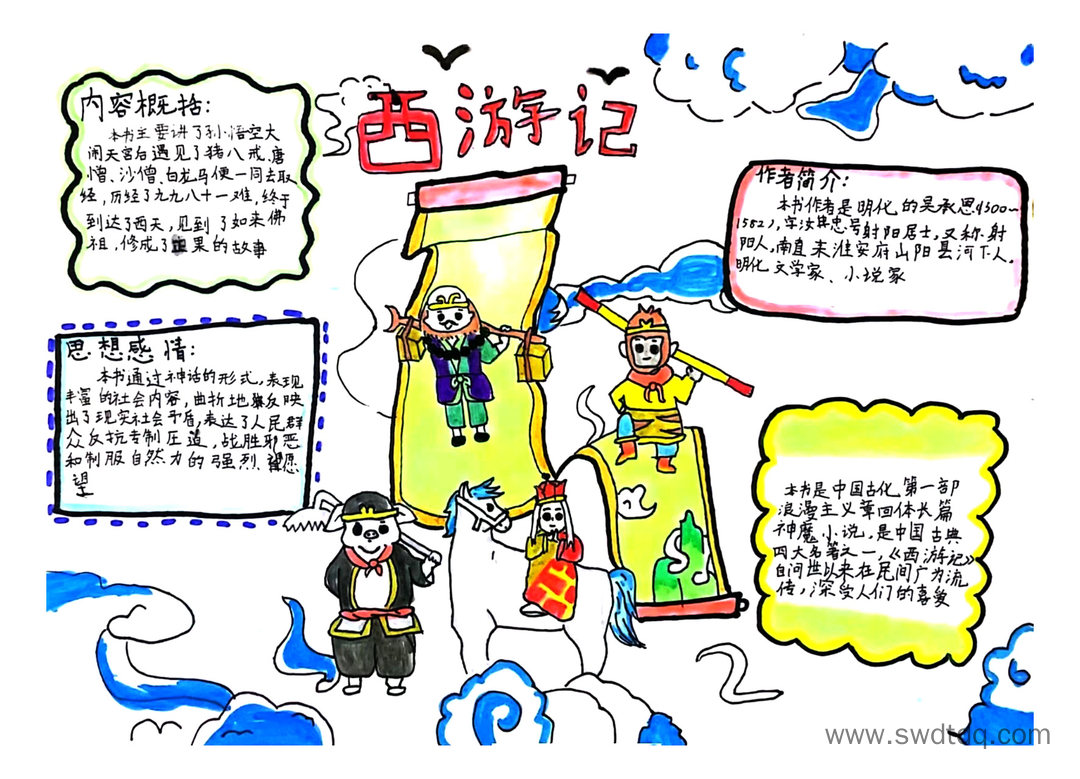 西游记
内容概括:
本书主要讲了孙悟空大
闹天宫后遇见了猪八戒、唐
僧、沙僧、白龙马便一同去取
经，历经了九九八十一难，终于
到达了西天，见到了如来佛
祖，修成了正果的故事
作者简介:
本书作者是明化的吴承恩(1500~
1582)，字汝忠号射阳居士，又称射
阳人，南直隶淮安府山阳县河下人。
明化文学家、小说家
思想感情:
本书通过神话的形式，表现
丰富的社会内容，曲折地反映
出了现实社会矛盾，表达了人民群
众反抗专制压迫，战胜邪恶
和制服自然力的强烈愿
望
本书是中国古化第一部
浪漫主义章回体长篇
神魔小说，是中国古典
四大名著之一，《西游记》
自问世以来在民间广为流
传，深受人们的喜爱
www.swdtdq.com